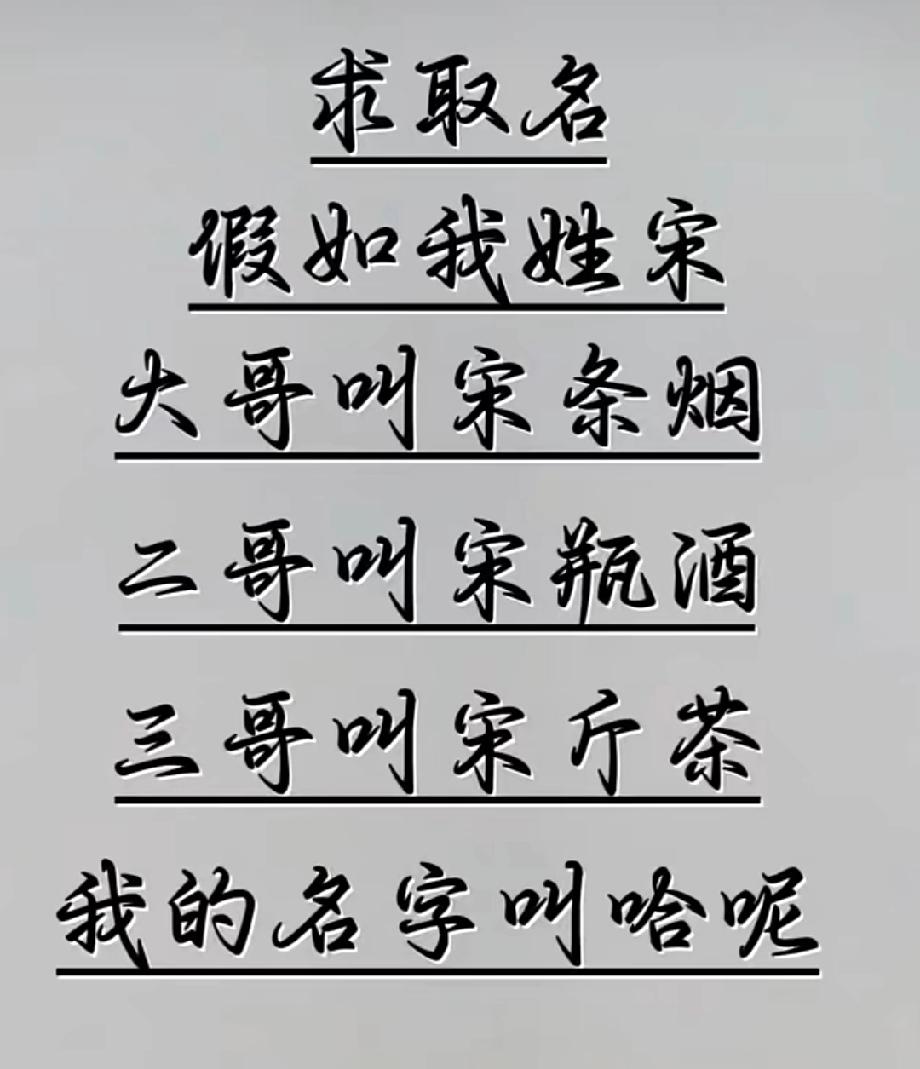 求取名
假如我姓宋
大哥叫宋条烟
二哥叫宋瓶酒
三哥叫宋斤茶
我的名字叫哈呢